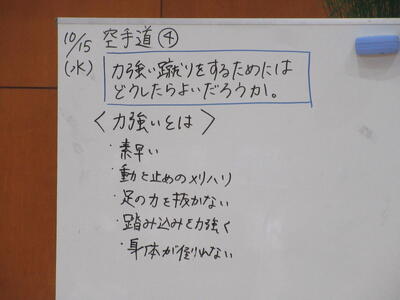 10/15 空手道 ④
(水)
力強い蹴りをするためには
どうしたらよいだろうか。
〈力強いとは〉
・素早い
・動と止めのメリハリ
・足の力を抜かない
・踏み込みを力強く
・身体が倒れない